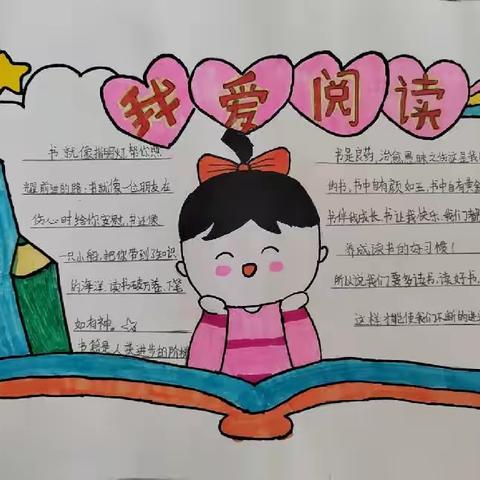 我爱阅读
书就像指明灯帮你照
亮前进的路；书就像一位朋友在
伤心时给你安慰，书还像
一只小船，把你带到了知识
的海洋。读书破万卷，下笔
如有神。
书籍是人类进步的阶梯
书是良药，治愈愚昧之伤这是我
的书，书中自有颜如玉，书中自有黄金
书伴我成长，书让我快乐，我们都
养成读书的好习惯！
所以说我们要多读书，读好书，
这样才能使我们不断的进